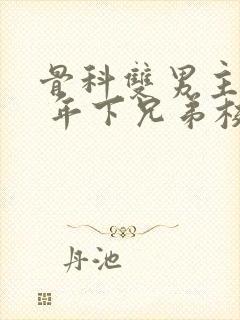 骨科雙男主
年下兄弟
丹池